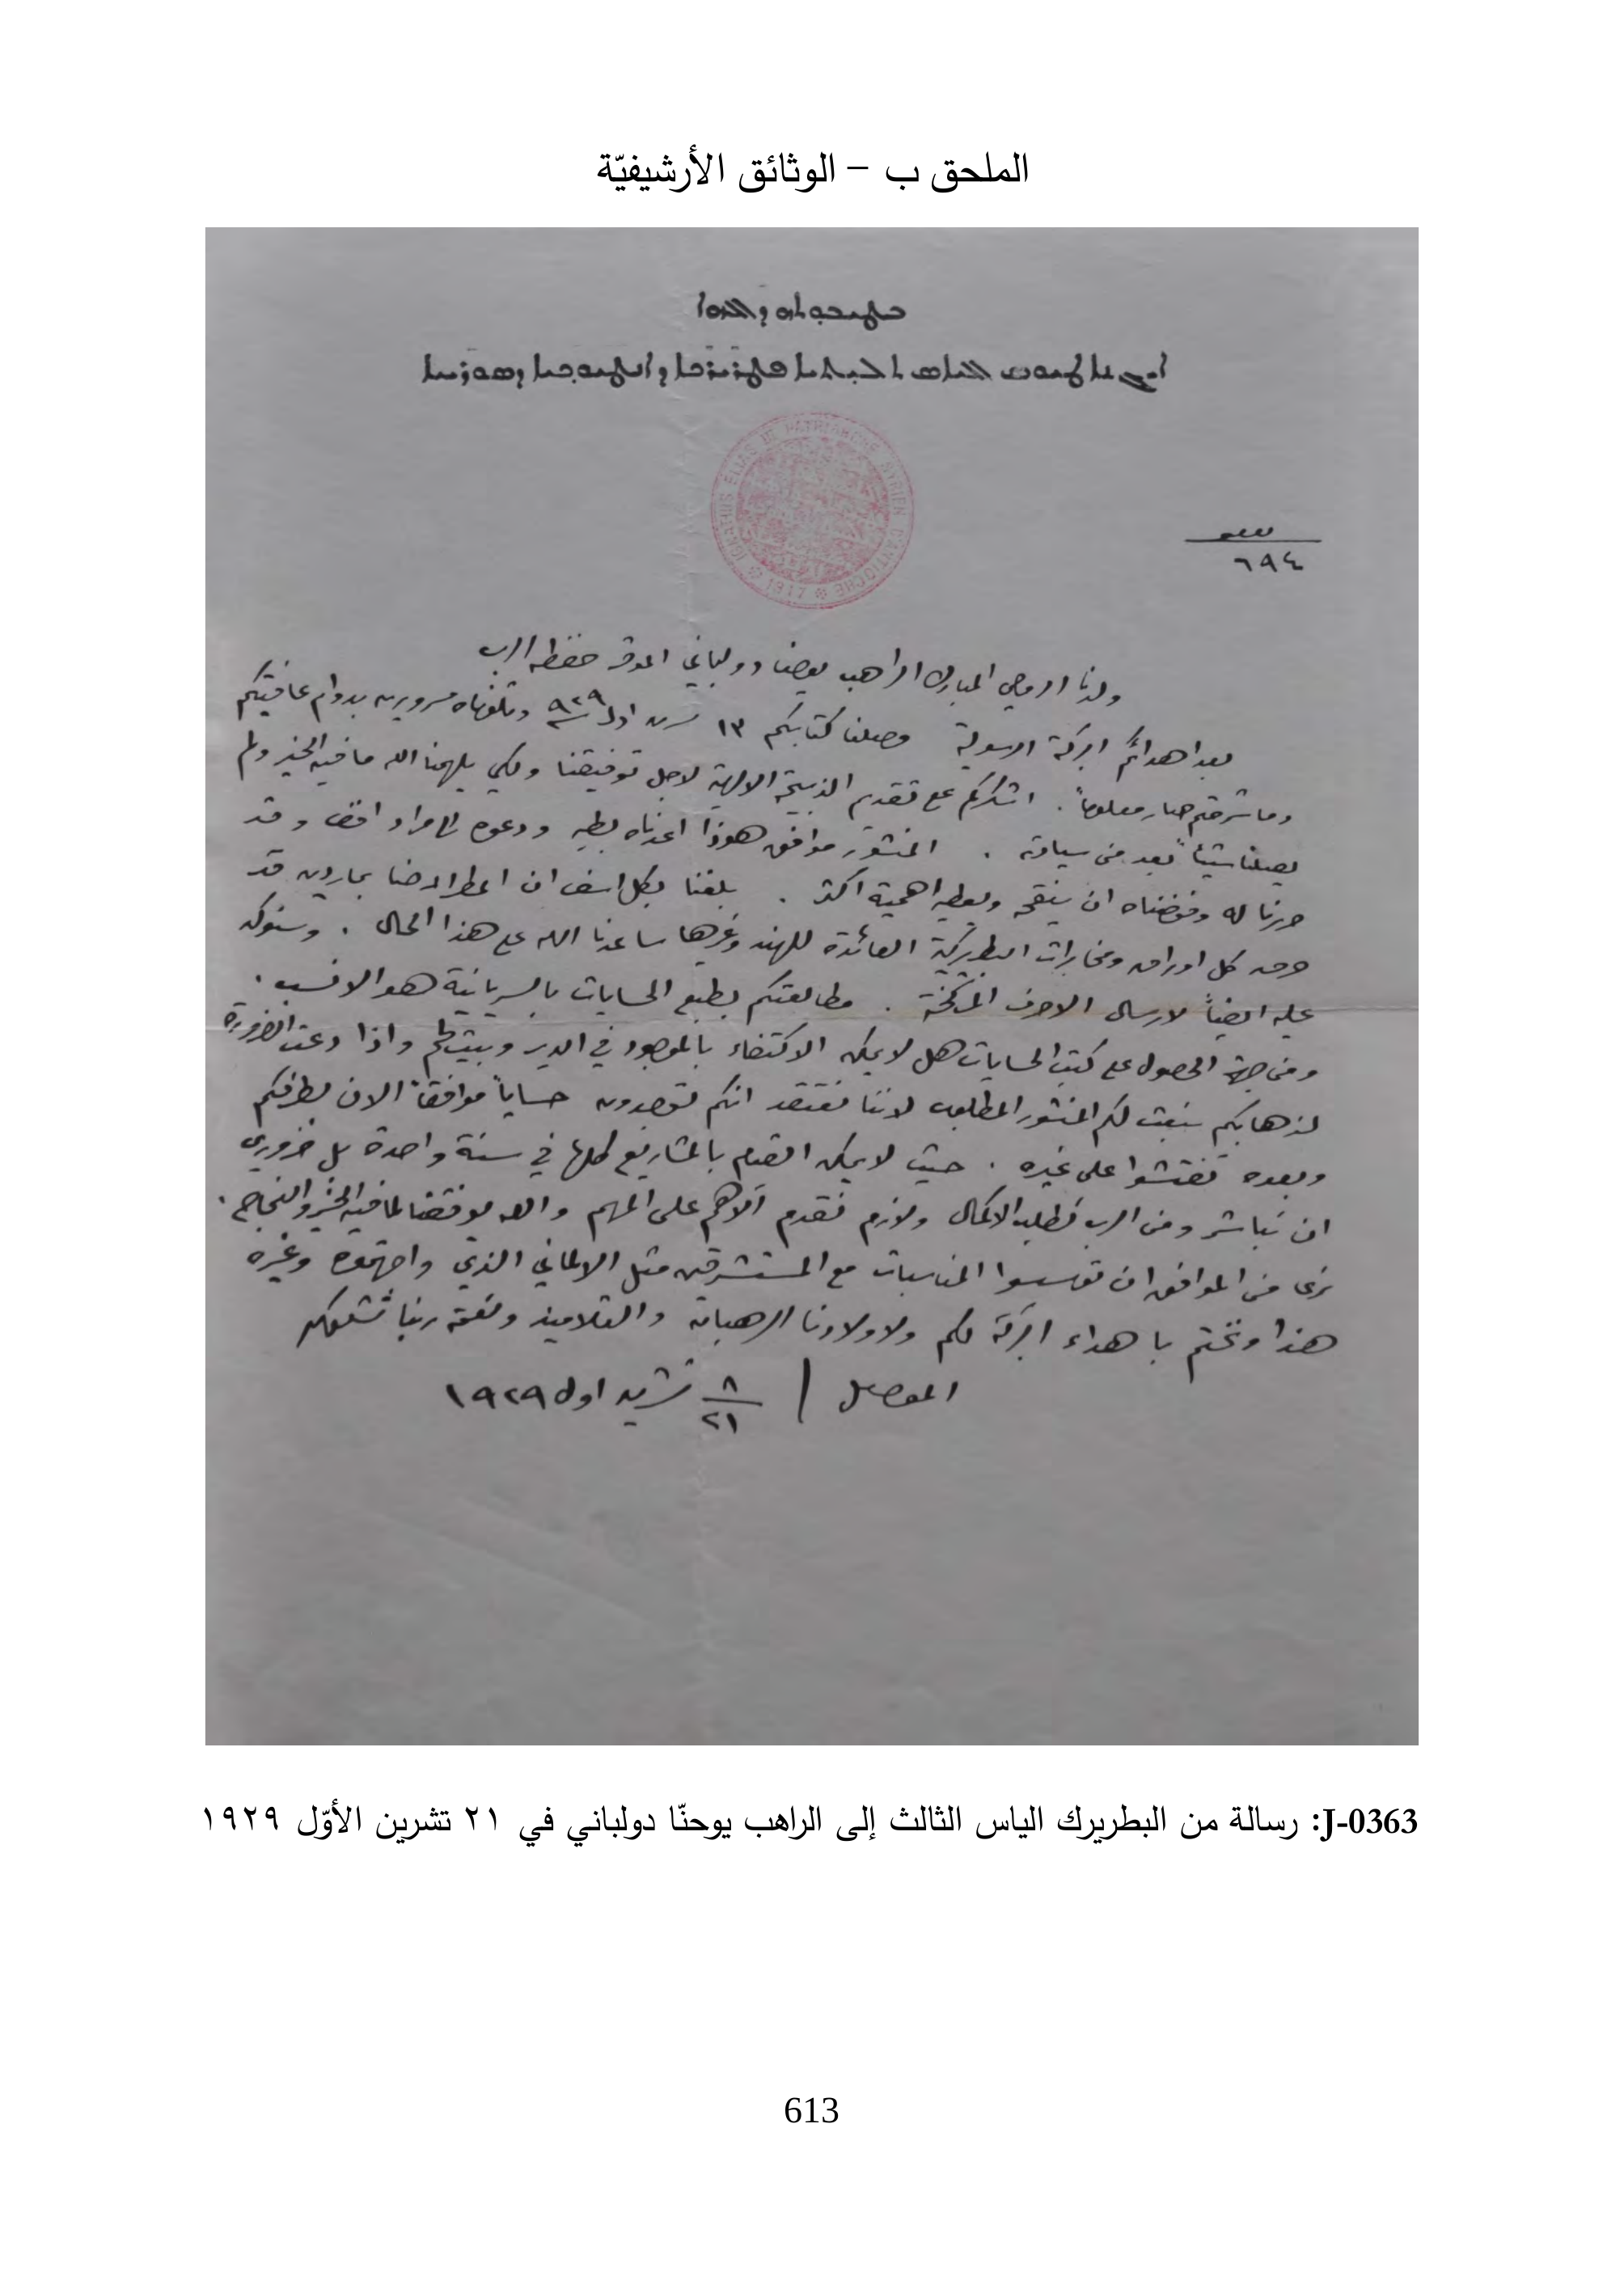 الملحق ب – الوثائق الأرشيفيّة
IGNATIUS ELIAS III PATRIARCHE SYRIEN D'ANTIOCHE
1917
٦٩٤
ولدنا الروحي المبارك الراهب يوحنا دولباني الموقر حفظه الرب
بعد اهدائكم البركة الرسولية وصلنا كتابكم ١٣ اول ٩٢٩ وتلقيناه مسرورين بدوام عافيتكم
وما شرحتم صار معلوماً. اشكركم على تقديم الذبيحة الالهية لاجل توفيقنا ولكي يلهمنا الله ما فيه الخير ولم
يصلنا شيئاً بعد من سيادته. المنشور موافق هوذا اعدناه و
حررنا له وفوضناه ان ينقحه ويعطيه اهمية اكثر. بلغنا بكل اسف ان المطران حنا بماردين قد
حرق كل اوراق ومخابرات البطريركية العائدة للهند وغيرها ساعدنا الله على هذا الحال. وسنوكد
عليه ايضاً لارسال الاحرف. مطالعتكم بطبع الحسايات بالسريانية هو الانسب.
ومن جهة الحصول على كتب الحسايات هل لا يمكن الاكتفاء بالموجود في الدير وبيتكم واذا دعت الضرورة
لذهابكم سنبعث لكم المنشور المطلوب لاننا نعتقد انكم تقصدون حساياً موافقاً الان بطرفكم
وبعده تفتشوا على غيره. حيث لا يمكن القيام بالمشاريع كلها في سنة واحدة بل ضروري
ان نباشر ومن الرب نطلب الاكمال ولازم نقدم الاهم على المهم والله يوفقنا لما فيه الخير والنجاح.
نرى من الموافق ان توسعوا المناسبات مع المستشرقين مثل الالماني الذي واجهتموه وغيره
هذا ونختم باهداء البركة لكم ولاولادنا الرهبان والتلاميذ ونعمة ربنا تشملكم
الموصل / ٨/٢١ تشرين اول ١٩٢٩
J-0363: رسالة من البطريرك الياس الثالث إلى الراهب يوحنّا دولباني في ٢١ تشرين الأوّل ١٩٢٩
613